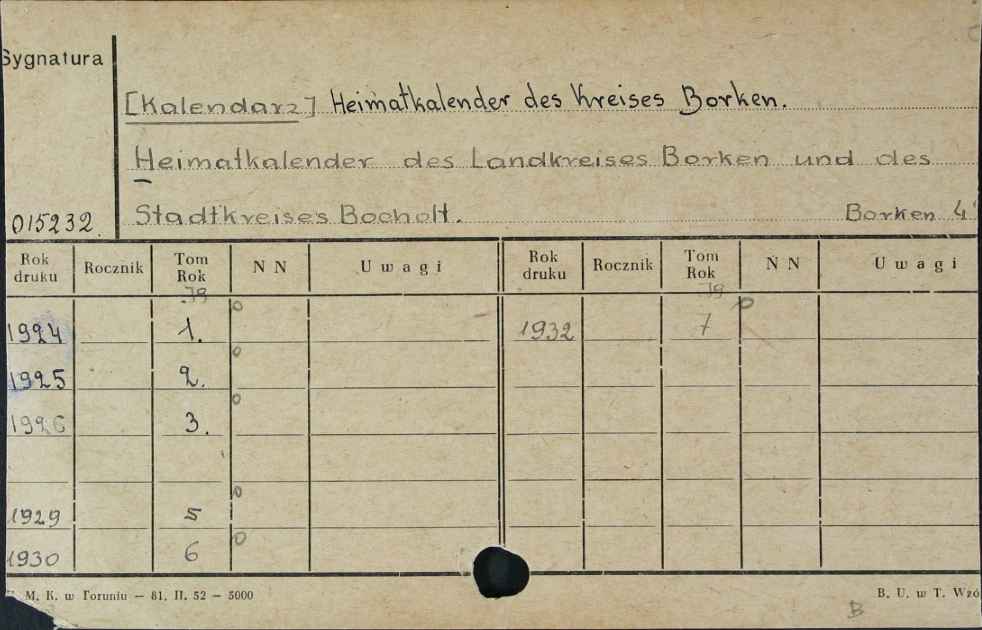 Sygnatura
[Kalendarz] Heimatkalender des Kreises Borken.
Heimatkalender des Landkreises Borken und des
Stadtkreises Bocholt.
015232. Borken 4°
Rok druku Rocznik Tom Rok N N Uwagi Rok druku Rocznik Tom Rok N N Uwagi
Jg Jg
1924 1. 1932 7
1925 2.
1926 3.
1929 5
1930 6
M. K. w Toruniu — 81. II. 52 — 5000 B. U. w T. Wzó
B